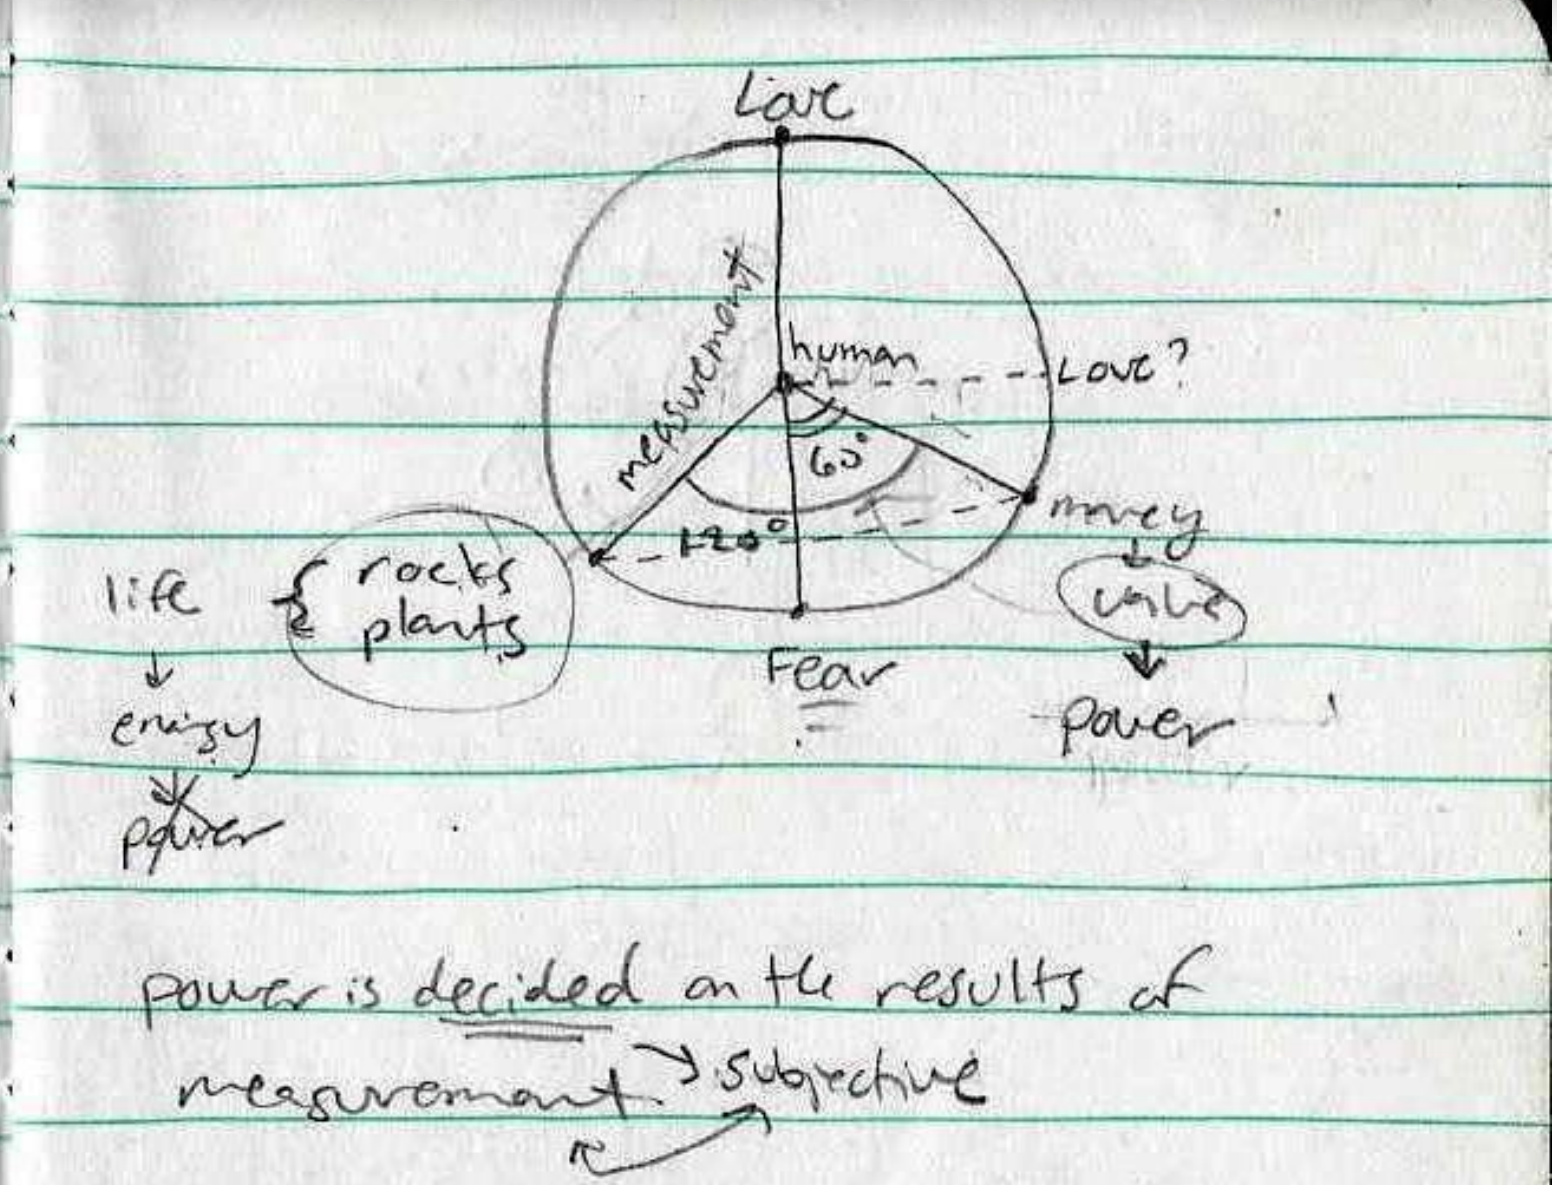 Love
measurement
human
Love?
60°
120°
money
value
power
life { rocks
plants
energy
power
Fear
power is decided on the results of
measurement. → subjective